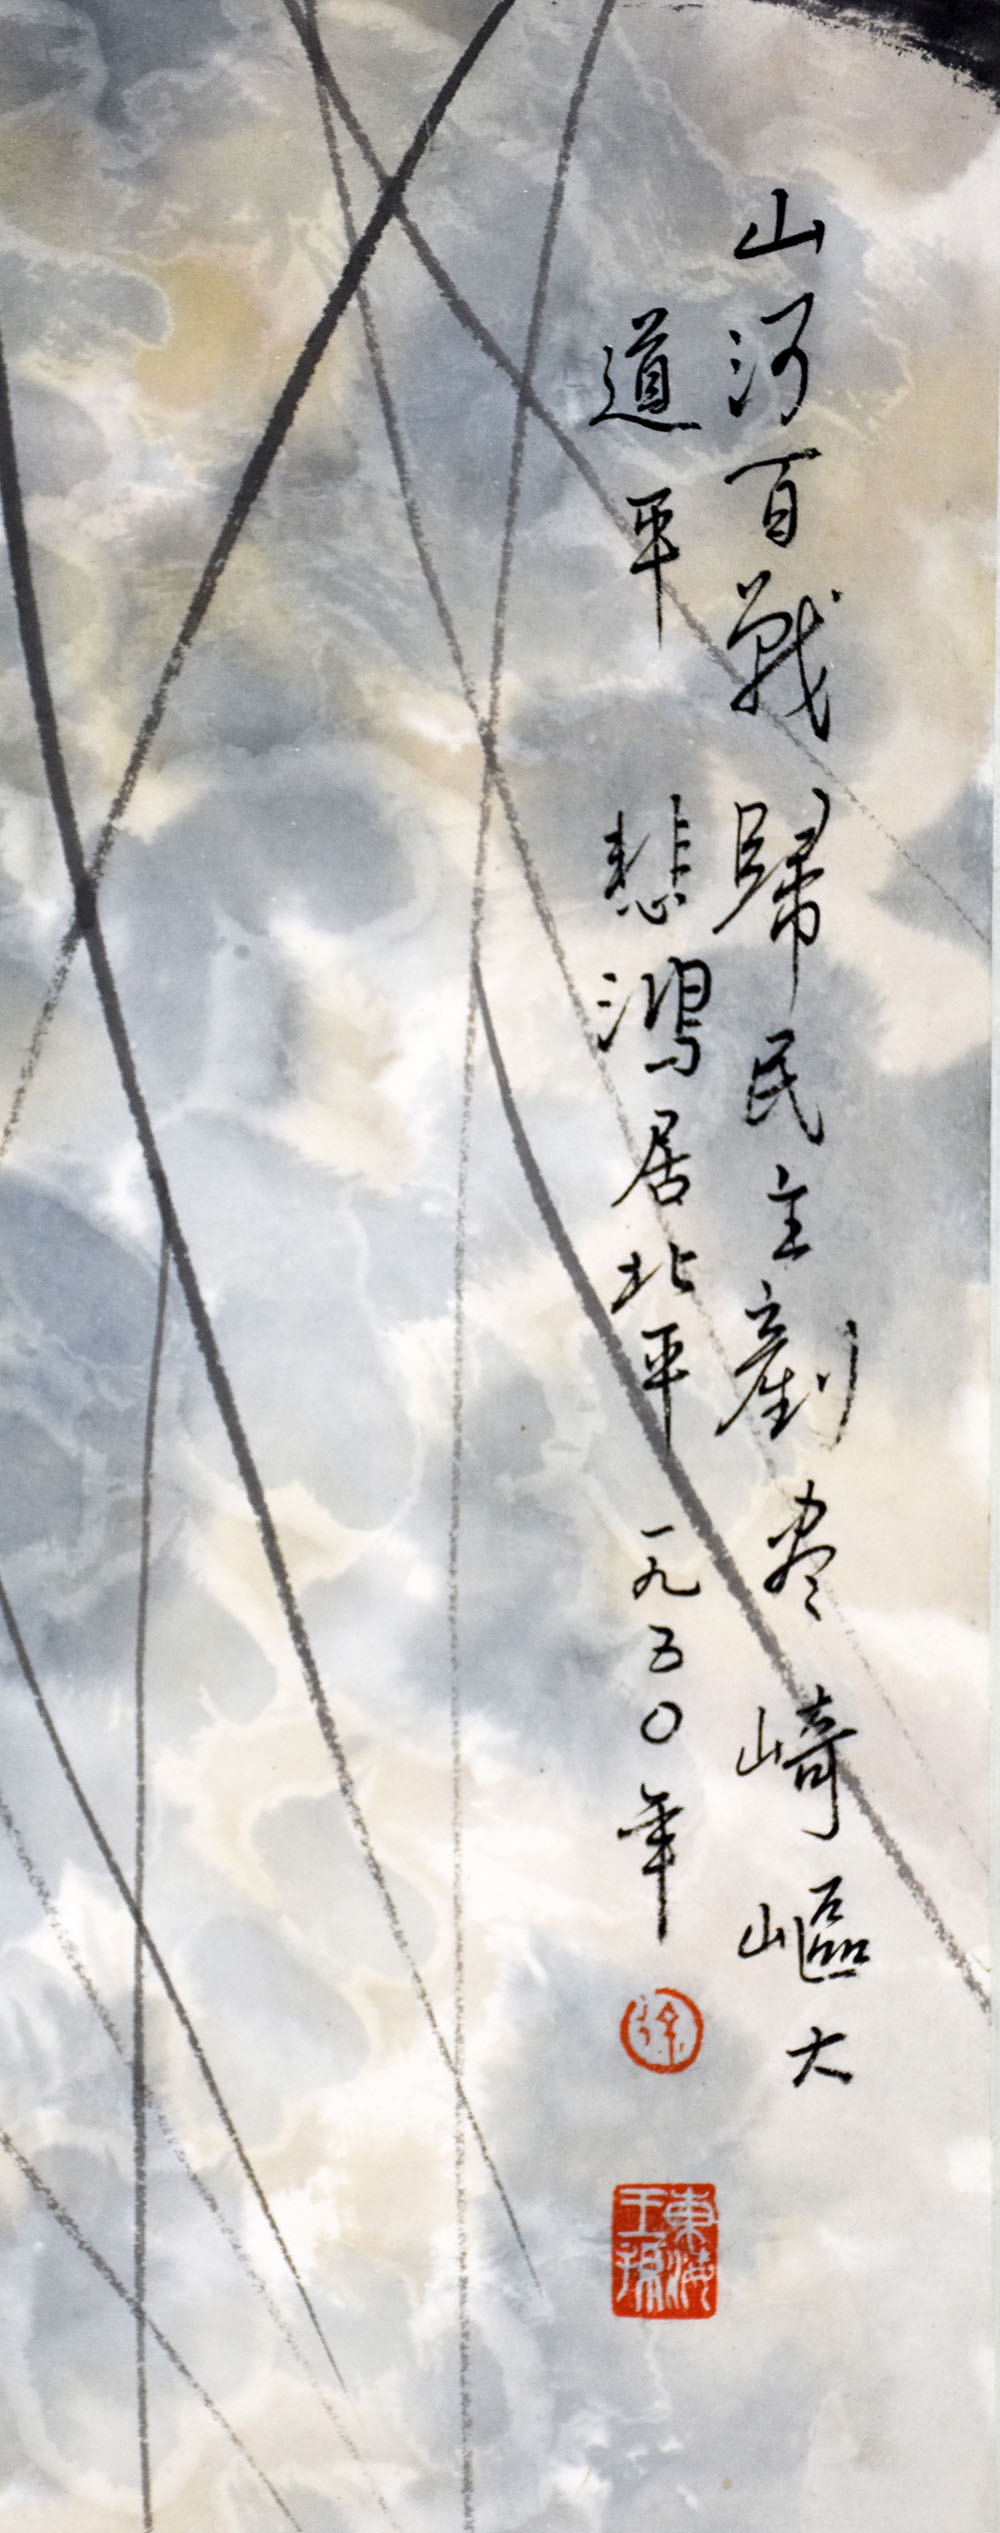 山河百戰歸民主剷尽崎嶇大
道平 悲鴻居北平 一九五〇年
徐
東海
王孫